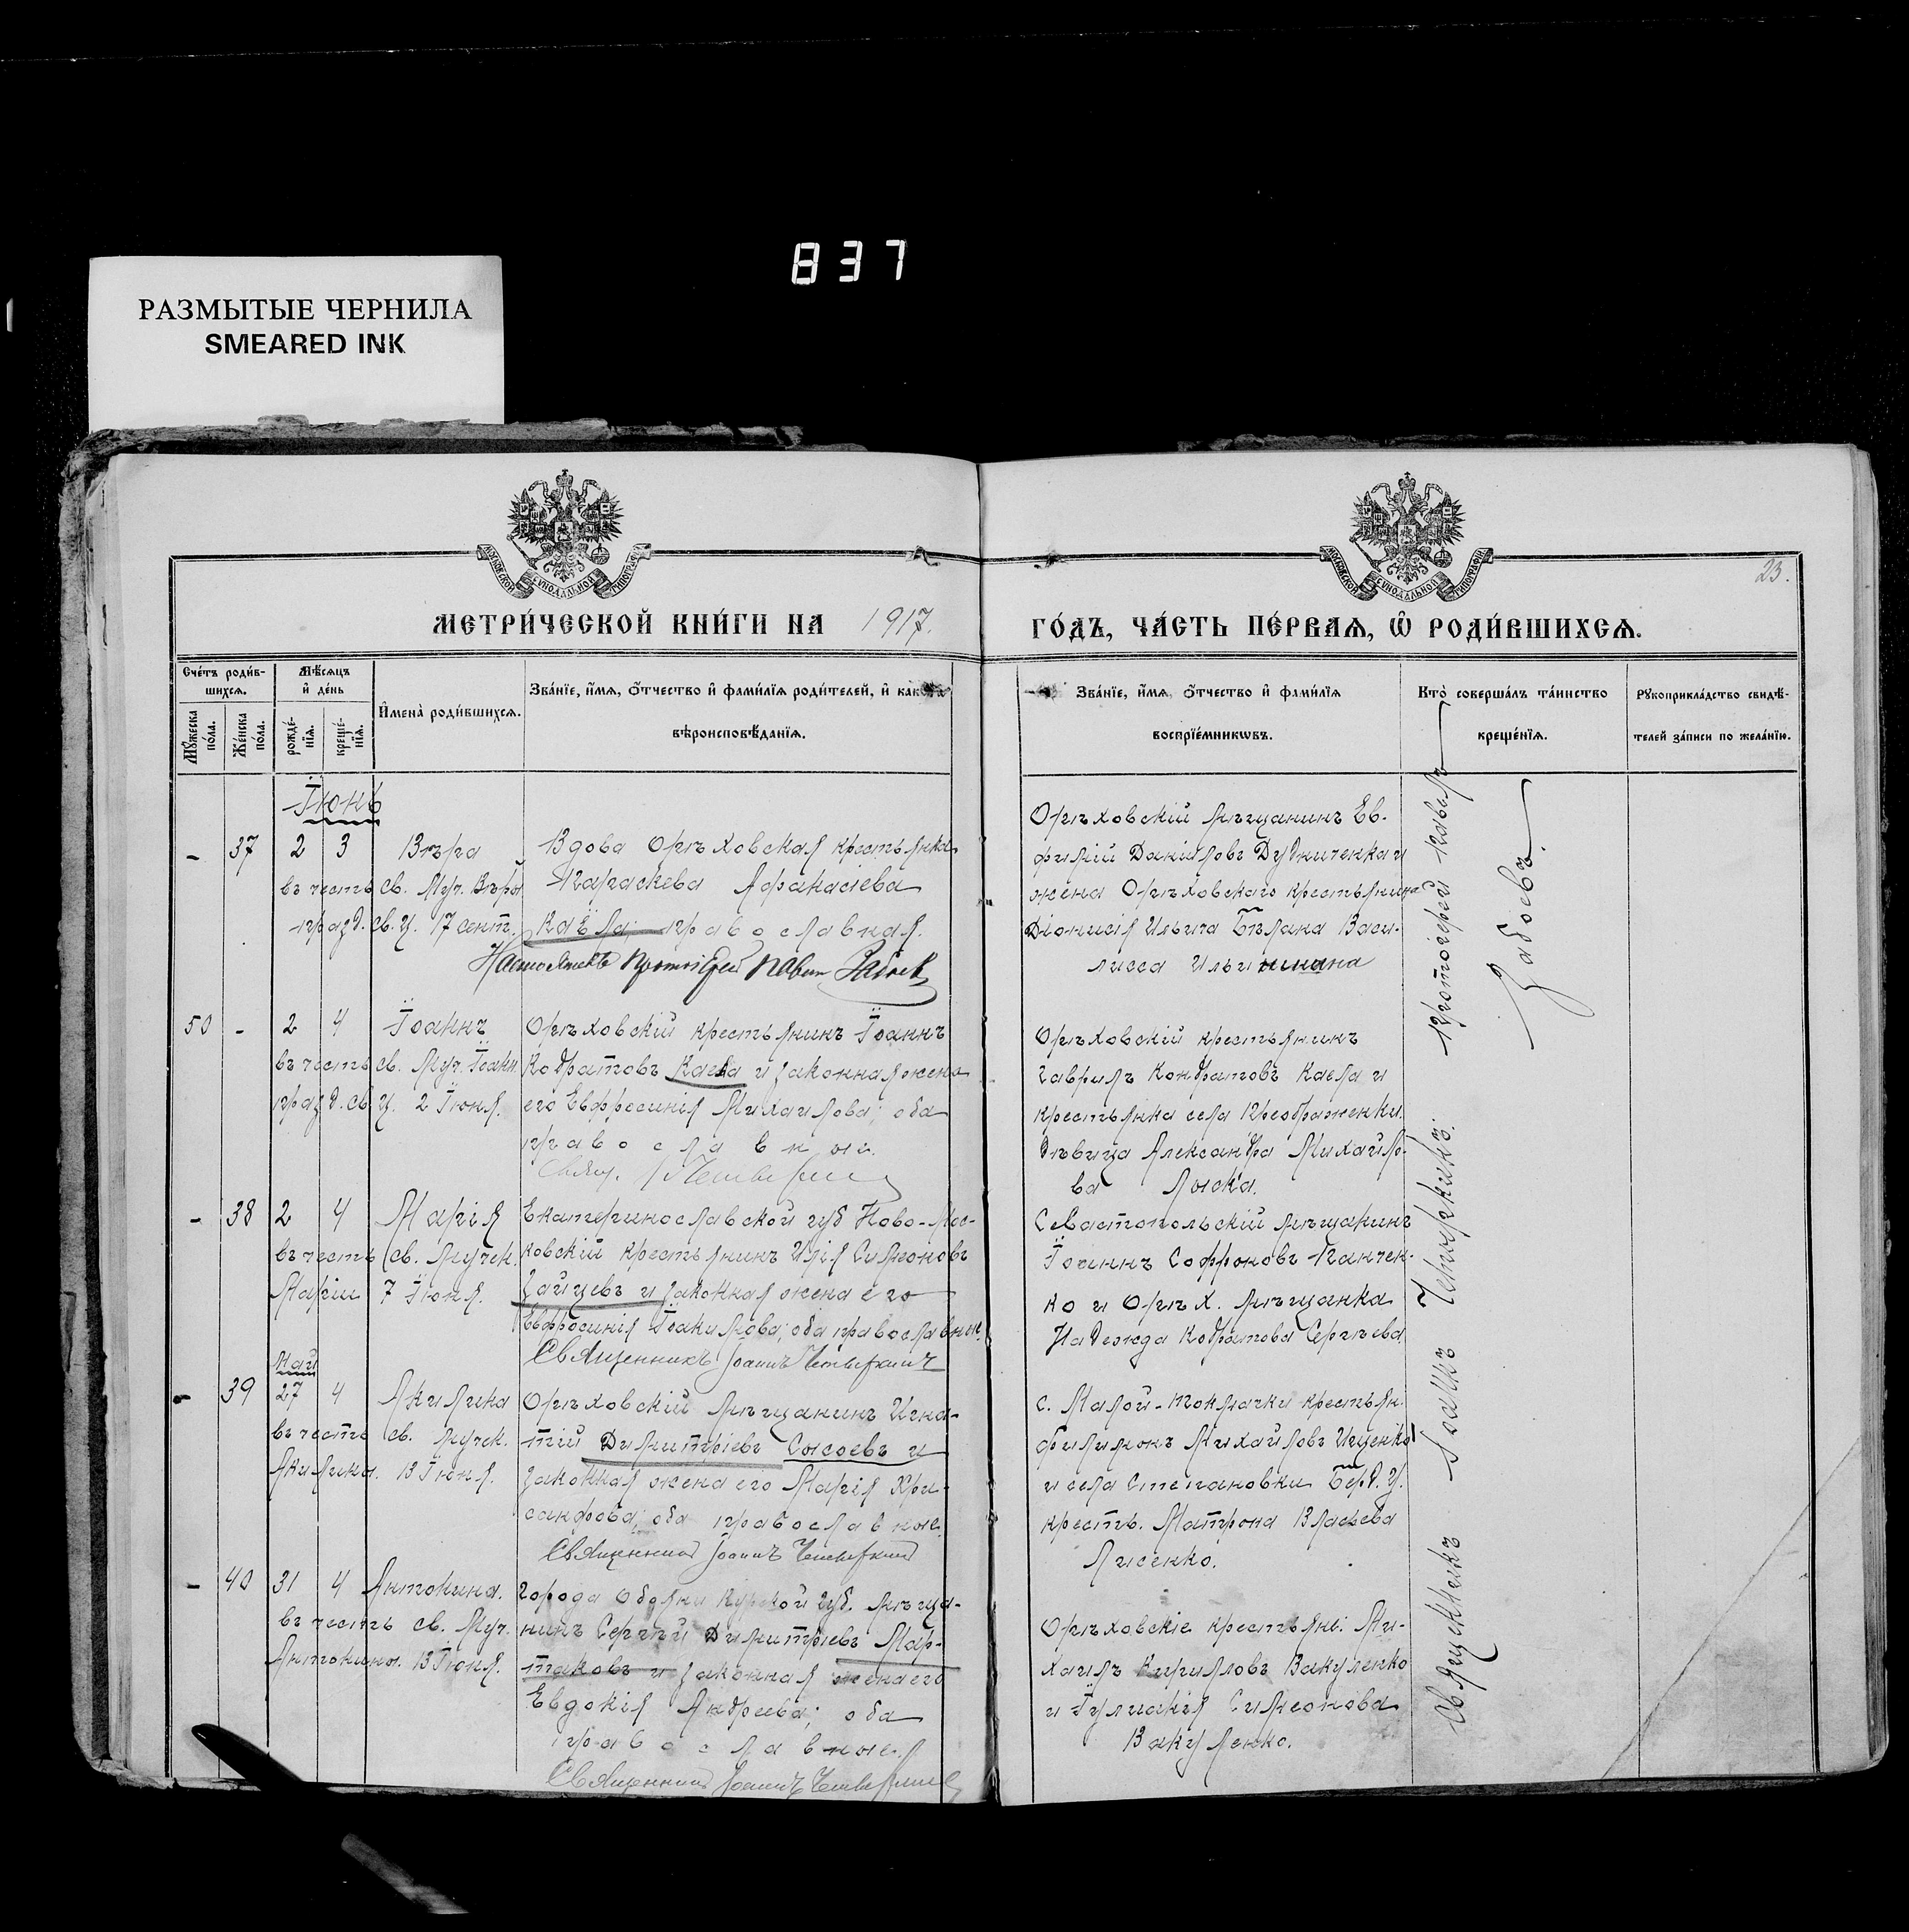 837
РАЗМЫТЫЕ ЧЕРНИЛА
SMEARED INK
МОСКОВСКОЙ СѴНОДАЛЬНОЙ ТИПОГРАФІИ
МОСКОВСКОЙ СѴНОДАЛЬНОЙ ТИПОГРАФІИ
23.
МЕТРИ́ЧЕСКОЙ КНИ́ГИ НА 1917. ГО́ДЪ, ЧА́СТЬ ПЕ́РВАѦ, Ѿ РОДИ́ВШИХСѦ.
Сче́тъ роди́в-
шихсѧ.
Мꙋ́жеска по́ла.
Же́нска по́ла.
Мѣ́сѧцъ и҆ де́нь
рожде́-
нїѧ.
креще́-
нїѧ.
И҆мена̀ роди́вшихсѧ.
Зва́нїе, и҆́мѧ, ѻ҆́тчество и҆ фами́лїѧ роди́телей, и҆ как
вѣроисповѣ́данїѧ.
Зва́нїе, и҆́мѧ, ѻ҆́тчество и҆ фами́лїѧ
воспрїе́мникѡвъ.
Кто̀ соверша́лъ та́инство
креще́нїѧ.
Рꙋкоприкла́дство свидѣ́-
телей за́писи по жела́нїю.
Іюнь
- 37 2 3 Вѣра
въ честь св. Муч. Вѣры
празд. св. ц. 17 сент.
Вдова Орѣховская крестьянка
Параскева Афанасіева
Каёла, православная.
Настоятель Протоіерей Павел Забоев
Орѣховскій мѣщанинъ Ев-
фимій Даніиловъ Дудниченка и
жена Орѣховскаго крестьянина
Діонисія Ильича Бѣлана Васи-
лисса Ильинична
Протоіерей Павелъ
Забоевъ.
50 - 2 4 Іоаннъ
въ честь св. Муч. Іоанн
празд. св. ц. 2 Іюня.
Орѣховскій крестьянинъ Іоаннъ
Кодратовъ Каела и законная жена
его Евфросинія Михаилова; оба
православные.
Свящ. І Четверкин
Орѣховскій крестьянинъ
Гавріилъ Кондратовъ Каела и
крестьянка села Преображенки.
дѣвица Александра Михайло-
ва Лыска.
- 38 2 4 Марія
въ честь св. мучен.
Маріи 7 Іюня.
Екатеринославской губ Ново-Мос-
ковскій крестьянинъ Илія Симеоновъ
Зайцевъ и законная жена его
Евфросинія Іоакимова; оба православные.
Священникъ Іоаннъ Четверкинъ
Севастопольскій мѣщанинъ
Іоаннъ Софроновъ Панчен-
ко и Орѣх. мѣщанка
Надежда Кодратова Сергѣева
Май
- 39 27 4 Акилина
въ честь св. мучен.
Акилины. 13 Іюня.
Орѣховскій мѣщанинъ Игна-
тій Димитріевъ Сысоевъ и
законная жена его Марія Хри-
санфова; оба православные.
Священник Іоаннъ Четверкин
с. Малой-Токмачки крестьян.
Филимонъ Михайловъ Ищенко
и села Степановки Берд. у.
кресть. Матрона Власьева
Лисенко.
- 40 31 4 Антонина.
въ честь св. Муч.
Антонины. 13 Іюня.
города Обояни Курской губ. мѣща-
нинъ Сергѣй Димитріевъ Мар-
таковъ и законная жена его
Евдокія Андреева; оба
православные.
Священник Іоаннъ Четверкин
Орѣховскіе крестьяне: Ми-
хаилъ Кирилловъ Вакуленко
и Іуліанія Симеонова
Вакуленко.
Священникъ Іоаннъ Четверкинъ.